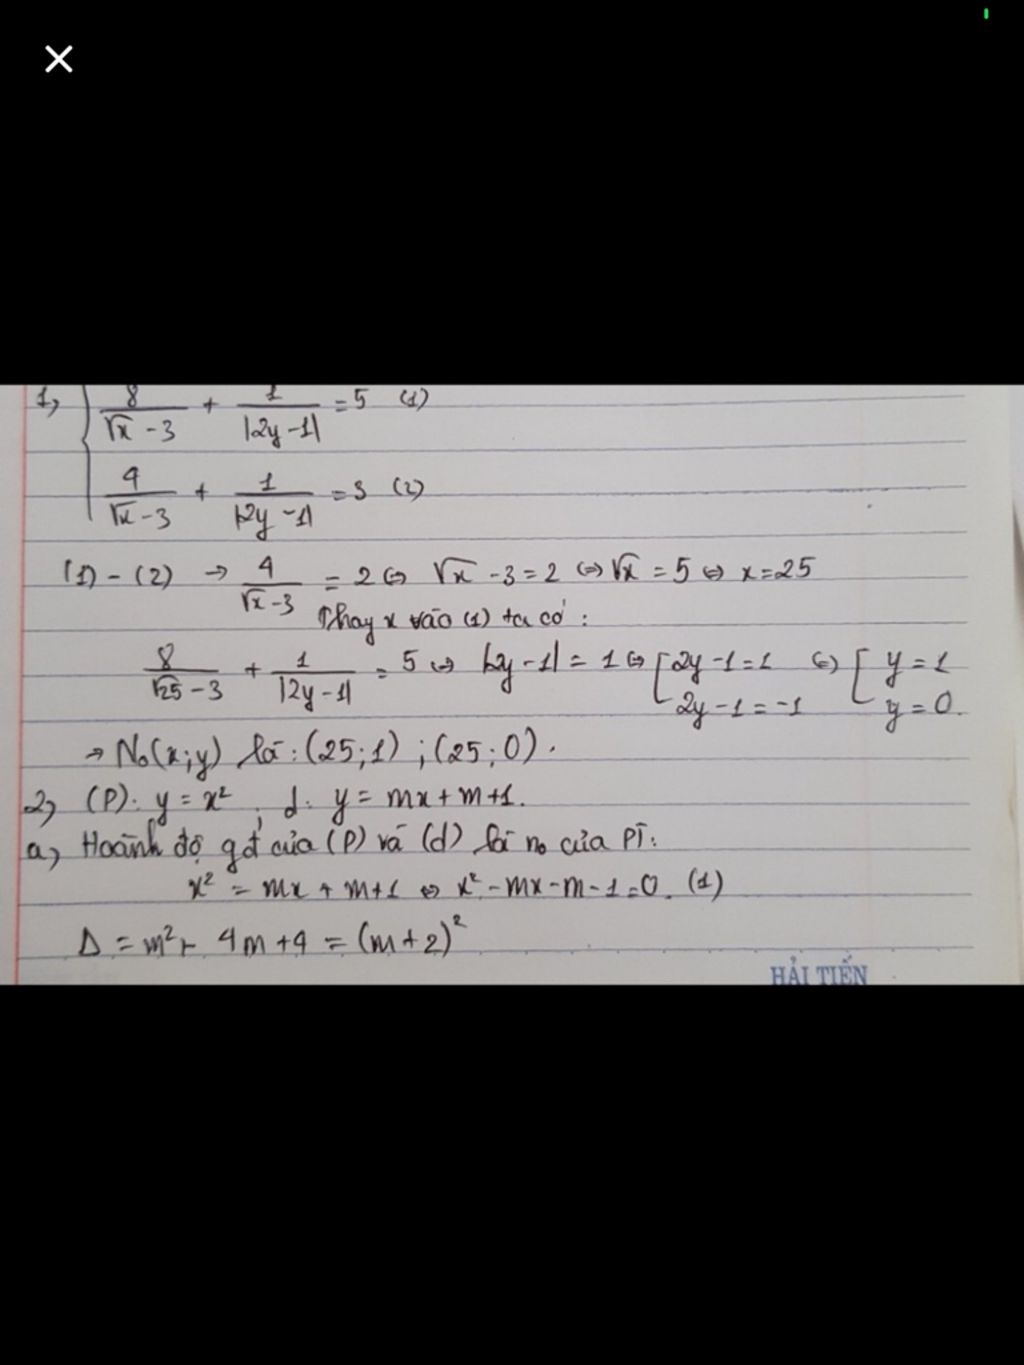 1, { 8/(√x - 3) + 1/|2y - 1| = 5 (1)
4/(√x - 3) + 1/|2y - 1| = 3 (2)
(1) - (2) → 4/(√x - 3) = 2 ⇔ √x - 3 = 2 ⇔ √x = 5 ⇔ x = 25
Thay x vào (1) ta có :
8/(√25 - 3) + 1/|2y - 1| = 5 ⇔ |2y - 1| = 1 ⇔ [ 2y - 1 = 1 ⇔ [ y = 1
2y - 1 = -1 y = 0.
→ No(x;y) là : (25;1) ; (25;0).
2, (P): y = x² , d: y = mx + m + 1.
a, Hoành độ gđ của (P) và (d) là no của PT:
x² = mx + m + 1 ⇔ x² - mx - m - 1 = 0. (1)
Δ = m² + 4m + 4 = (m + 2)²
HẢI TIẾN